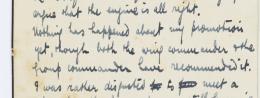 argue that the engine is all right.
Nothing has happened about my promotion
yet, though both the wing commander & the
group commander have recommended it.
I was rather disgusted to meet a